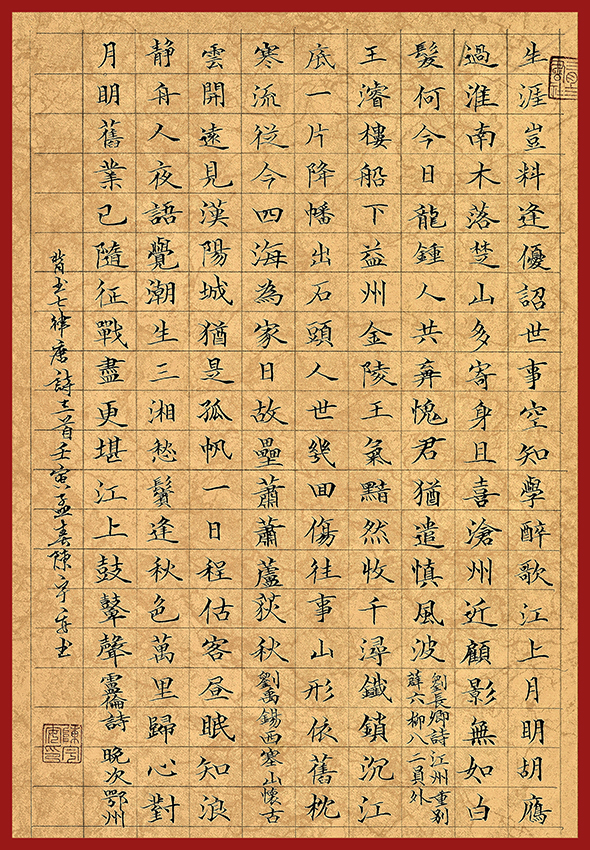 生涯豈料逢優詔世事空知學醉歌江上月明胡鴈
過淮南木落楚山多寄身且喜滄州近顧影無如白
髮何今日龍鍾人共棄愧君猶遣慎風波
劉長卿詩江州重別
薛六柳八二員外
王濬樓船下益州金陵王氣黯然收千尋鐵鎖沉江
底一片降幡出石頭人世幾回傷往事山形依舊枕
寒流從今四海為家日故壘蕭蕭蘆荻秋劉禹錫西塞山懷古
雲開遠見漢陽城猶是孤帆一日程估客昼眠知浪
静舟人夜語覺潮生三湘愁鬢逢秋色萬里歸心對
月明舊業已隨征戰盡更堪江上鼓鼙聲盧倫詩 晚次鄂州
背书七律唐詩三首壬寅孟春陳书